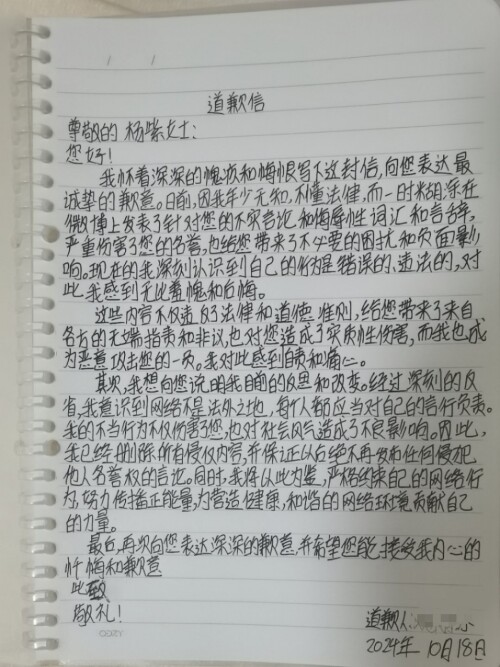 道歉信
尊敬的杨紫女士：
您好！
我怀着深深的愧疚和悔恨写下这封信，向您表达最
诚挚的歉意。日前，因我年少无知，不懂法律，而一时糊涂在
微博上发表了针对您的不实言论和侮辱性词汇和言辞，
严重伤害了您的名誉，也给您带来了不必要的困扰和负面影
响。现在的我深刻认识到自己的行为是错误的、违法的，对
此，我感到无比羞愧和后悔。
这些内容不仅违反了法律和道德准则，给您带来了来自
各方的无端指责和非议，也对您造成了实质性伤害，而我也成
为恶意攻击您的一员。我对此感到自责和痛心。
其次，我想向您说明我目前的反思和改变。经过深刻的反
省，我意识到网络不是法外之地，每个人都应当对自己的言行负责。
我的不当行为不仅伤害了您，也对社会风气造成了不良影响。因此，
我已经删除所有侵权内容，并保证以后绝不再发布任何侵犯
他人名誉权的言论。同时，我将以此为鉴，严格约束自己的网络行
为，努力传播正能量，为营造健康，和谐的网络环境贡献自己
的力量。
最后，再次向您表达深深的歉意，并希望您能接受我内心的
忏悔和歉意
此致
敬礼！
道歉人：
COZY
2024年 10月18日